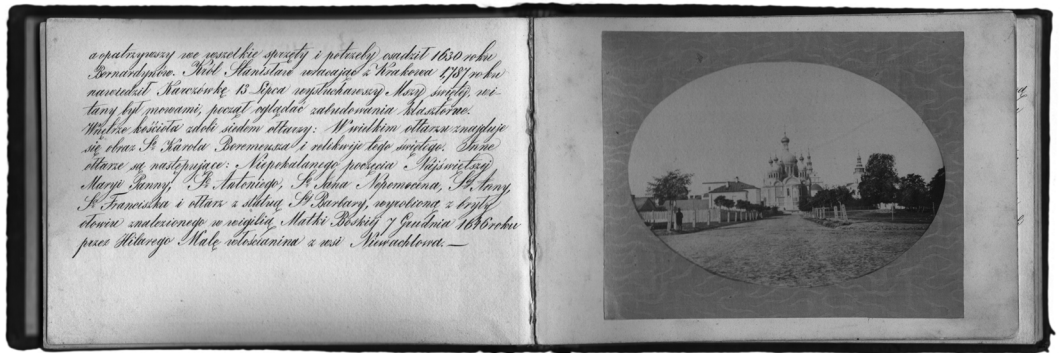 zaopatrzywszy we wszelkie sprzęty i potrzeby osadził 1630 roku
Bernardynów. Król Stanisław wracając z Krakowa 1,787 roku
nawiedził Karczówkę 13 Lipca wysłuchawszy Mszy świętej, wi-
tany był mowami, począł oglądać zabudowania klasztorne.
Wnętrze kościoła zdobi siedem ołtarzy: W wielkim ołtarzu znajduje
się obraz Św Karola Boromeusza i relikwije tego świętego. Inne
ołtarze są następujące: Niepokalanego poczęcia Najświętszej
Maryi Panny, Św Antoniego, Św Jana Nepomocena, Św Anny,
Św Franciszka i ołtarz z statuą Św Barbary, wyrobioną z bryły
ołowiu znalezionego w wigilią Matki Boskiej 7 Grudnia 1646 roku
przez Hilarego Malę włościanina z wsi Niewachlowa.—